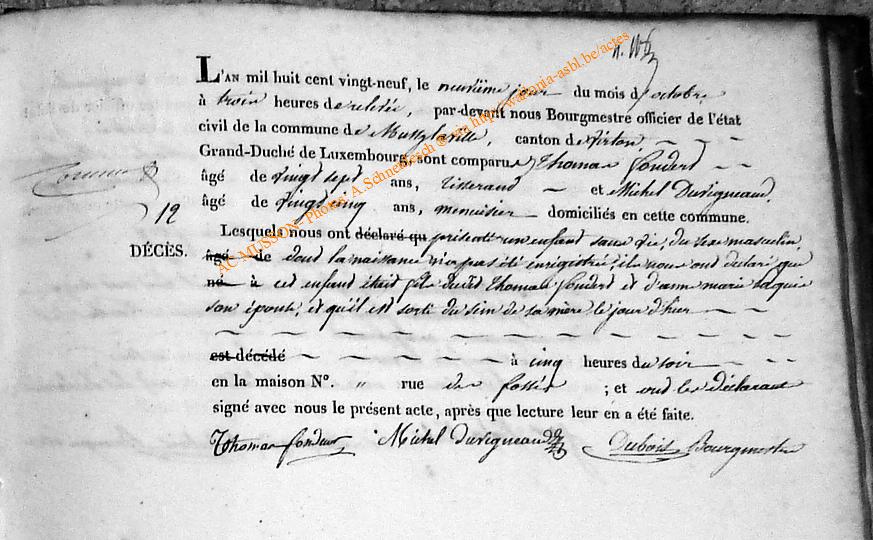 n. 106
L'AN mil huit cent vingt-neuf, le neuvième jour du mois d'octobre
à trois heures de relevée, par-devant nous Bourgmestre officier de l'état
civil de la commune de canton de Virton,
Grand-Duché de Luxembourg, sont comparus Thomas Fondert
âgé de vingt sept ans, tisserand et Michel Duvigneaud,
âgé de vingt cinq ans, menuisier domiciliés en cette commune.
12
DÉCÈS.
Lesquels nous ont déclaré qu présenté un enfant sans vie, du sexe masculin,
âgé de dont la naissance n'a pas été enregistrée, ils nous ont déclaré que
né à cet enfant était fils dudit Thomas Fondert et d'anne marie
son épouse, et qu'il est sorti du sein de sa mère le jour d'hier
est décédé à cinq heures du soir
en la maison N°. " rue des fossés ; et ont les déclarans
signé avec nous le présent acte, après que lecture leur en a été faite.
Thomas fondeur Michel Duvigneaud Dubois Bourgmestre
AC-MUSSON- Photos A.Schneidesch @ via http://watonia-asbl.be/actes